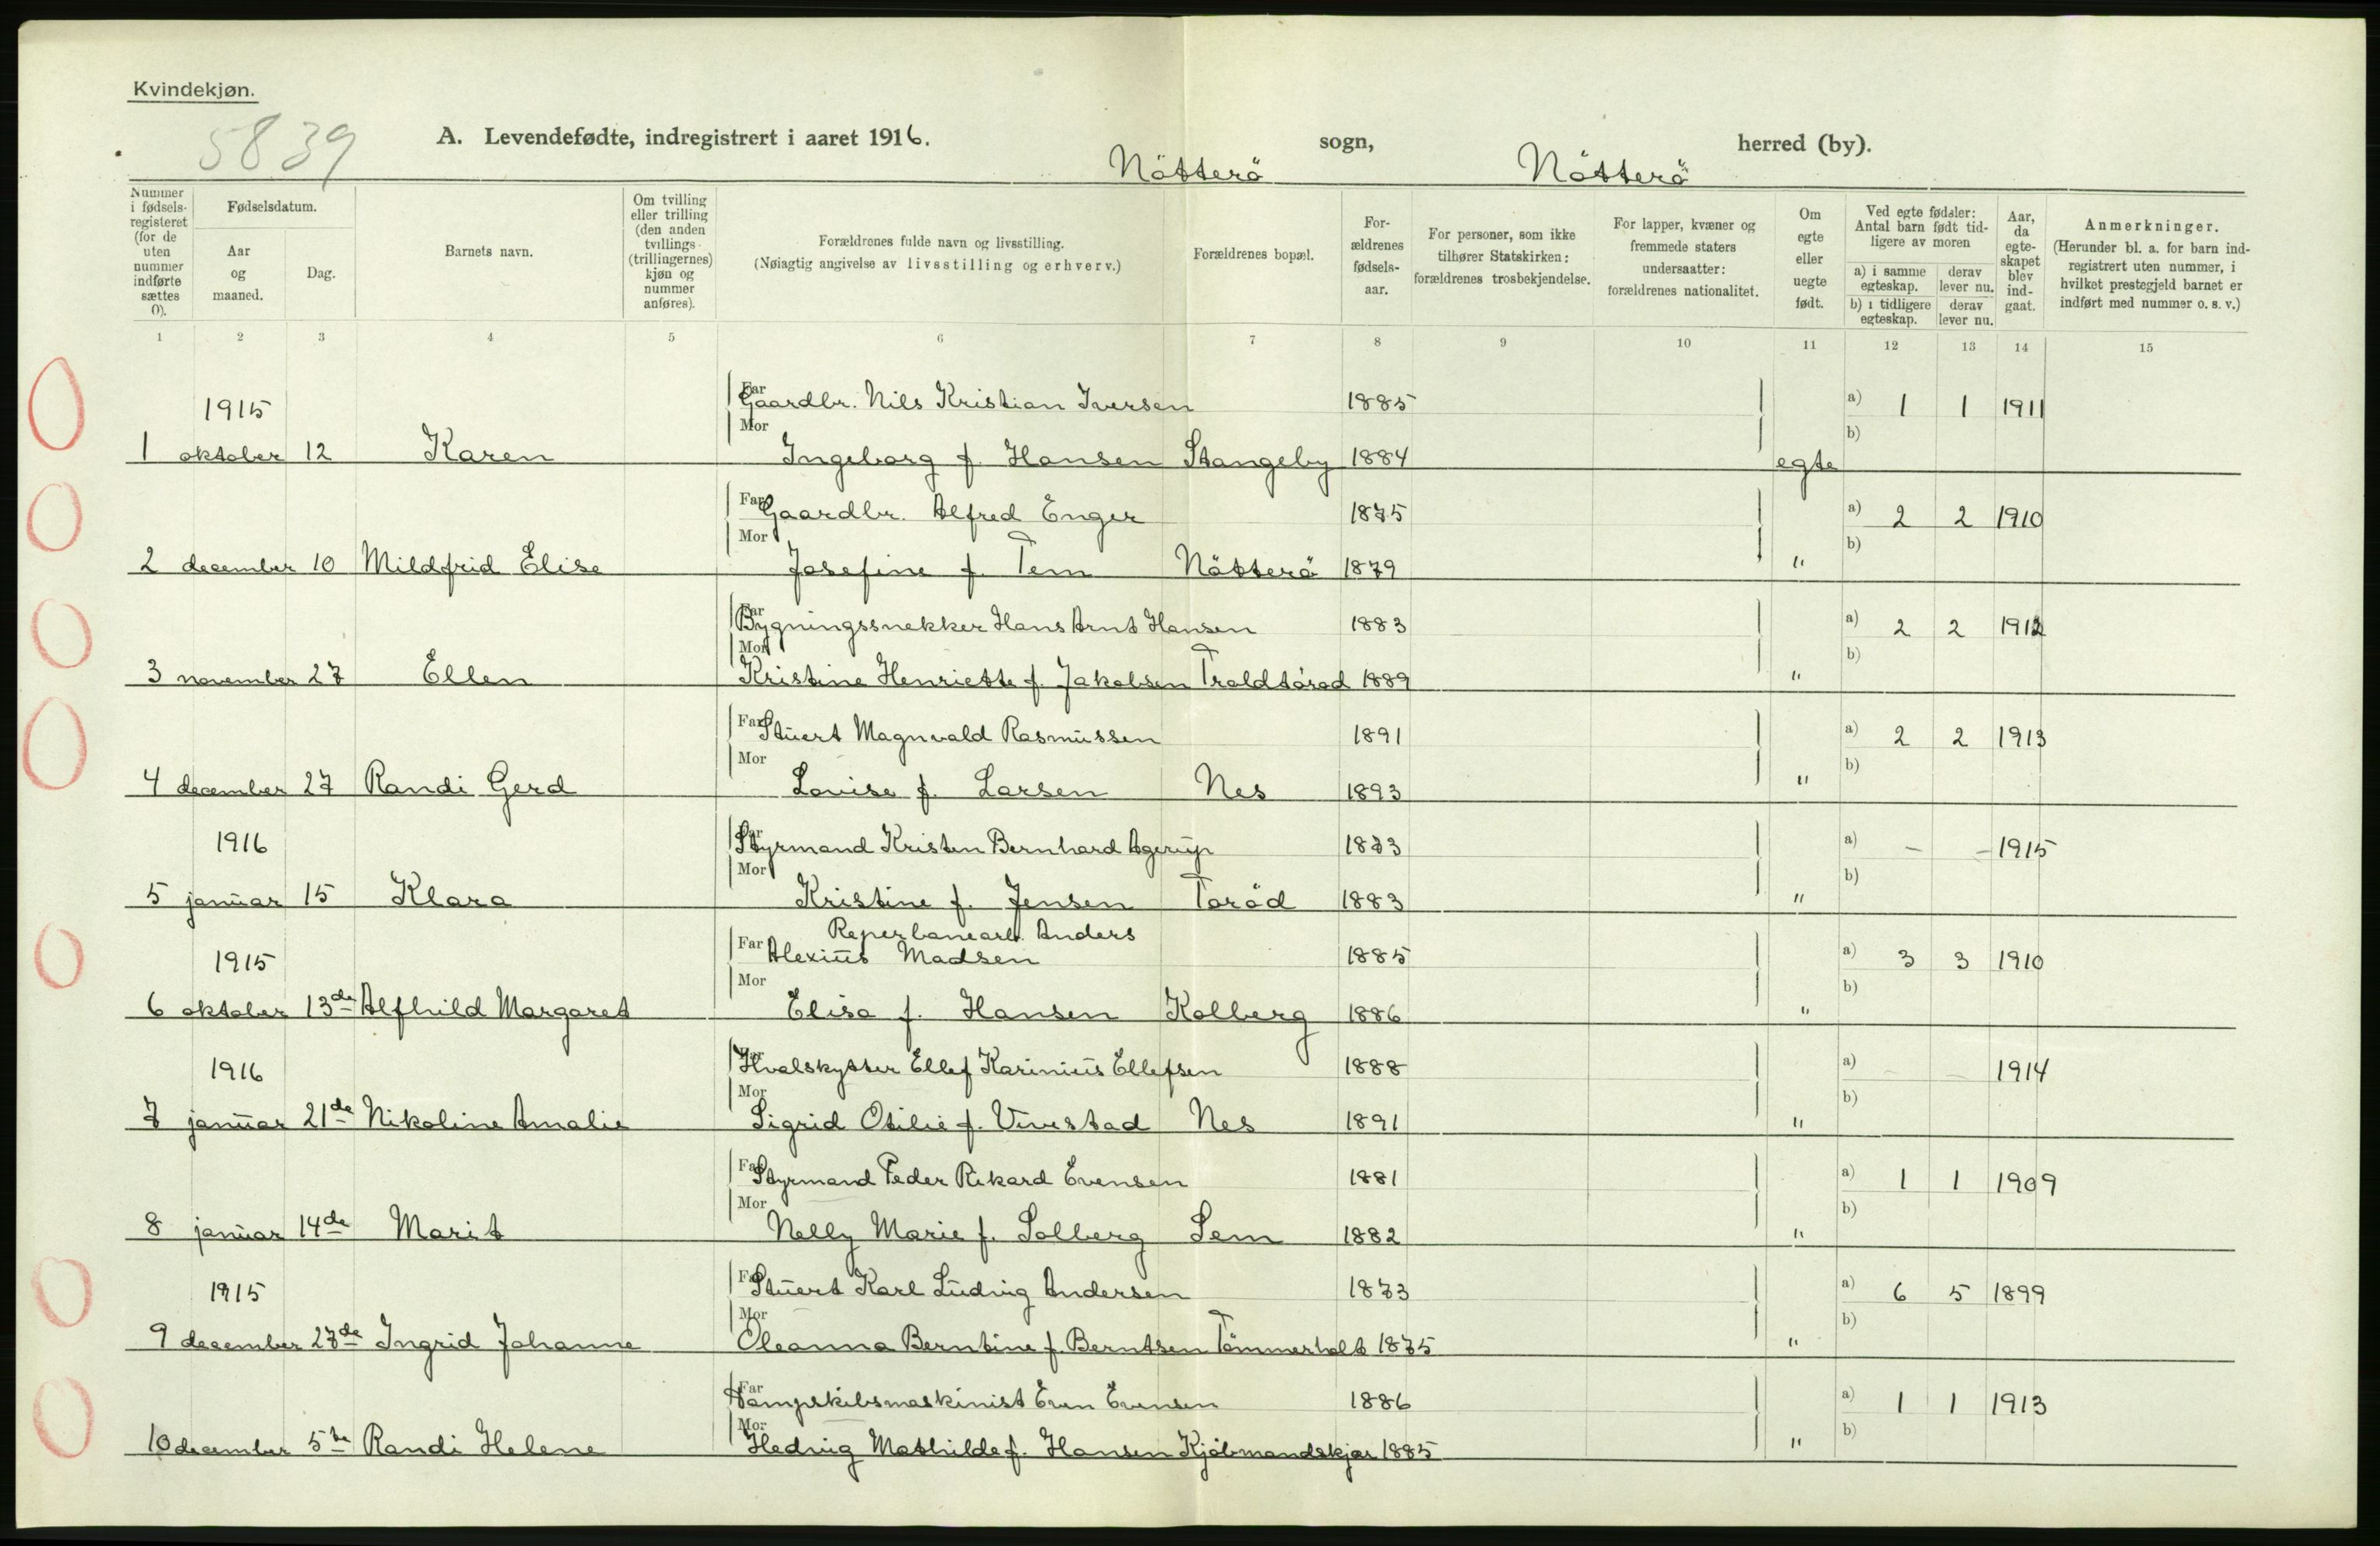 Kvindekjøn.
5839
A. Levendefødte, indregistrert i aaret 1916. Nötterö sogn, Nötterö herred (by).
Nummer i fødselsregisteret (for de uten nummer indførte sættes 0).
Fødselsdatum.
Aar og maaned.
Dag.
Barnets navn.
Om tvilling eller trilling (den anden tvillings (trillingernes) kjøn og nummer anføres).
Forældrenes fulde navn og livsstilling.
(Nøiagtig angivelse av livsstilling og erhverv.)
Forældrenes bopæl.
Forældrenes fødselsaar.
For personer, som ikke tilhører Statskirken: forældrenes trosbekjendelse.
For lapper, kvæner og fremmede staters undersaatter: forældrenes nationalitet.
Om egte eller uegte født.
Ved egte fødsler: Antal barn født tidligere av moren
a) i samme egteskap.
derav lever nu.
b) i tidligere egteskap.
derav lever nu.
Aar, da egteskapet blev indgaat.
Anmerkninger.
(Herunder bl. a. for barn indregistrert uten nummer, i hvilket prestegjeld barnet er indført med nummer o. s. v.)
1 2 3 4 5 6 7 8 9 10 11 12 13 14 15
1915 Far Gaardbr. Nils Kristian Iversen 1885 a) 1 1 1911
1 oktober 12 Karen Mor Ingeborg f. Hansen Stangeby 1884 egte b)
Far Gaardbr. Alfred Enger 1875 a) 2 2 1910
2 december 10 Mildfrid Elise Mor Josefine f. Tem Nötterö 1879 " b)
Far Bygningssnekker Hans Arnt Hansen 1883 a) 2 2 1912
3 november 27 Ellen Mor Kristine Henriette f. Jakobsen Troldtöröd 1889 " b)
Far Stuert Magnvald Rasmussen 1891 a) 2 2 1913
4 december 27 Randi Gerd Mor Lovise f. Larsen Nes 1893 " b)
1916 Far Styrmand Kristen Bernhard Agerup 1873 a) - - 1915
5 januar 15 Klara Mor Kristine f. Jensen Toröd 1883 " b)
Reperbanearb. Anders
1915 Far Alexius Madsen 1885 a) 3 3 1910
6 oktober 13de Alfhild Margaret Mor Elisa f. Hansen Kolberg 1886 " b)
1916 Far Hvalskytter Ellef Karinius Ellefsen 1888 a) - - 1914
7 januar 21de Nikoline Amalie Mor Sigrid Otilie f. Vivestad Nes 1891 " b)
Far Styrmand Peder Rikard Evensen 1881 a) 1 1 1909
8 januar 14de Marit Mor Nelly Marie f. Solberg Sem 1882 " b)
1915 Far Stuert Karl Ludvig Andersen 1873 a) 6 5 1899
9 december 27de Ingrid Johanne Mor Oleanna Berntine f. Berntsen Tömmerholt 1875 " b)
Far Dampskibsmaskinist Even Evensen 1886 a) 1 1 1913
10 december 5te Randi Helene Mor Hedvig Mathilde f. Hansen Kjöbmandskjær 1885 " b)